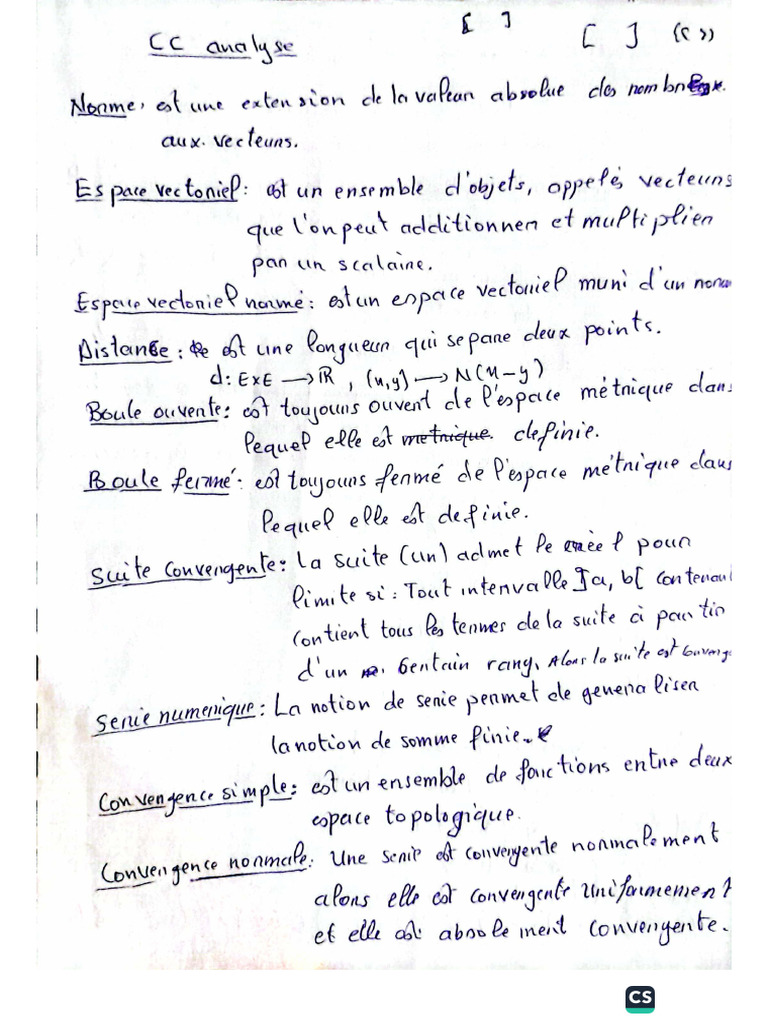 [ ]
[ ] (( ))
CC analyse
Norme, est une extension de la valeur absolue des nombres
aux vecteurs.
Espace vectoriel : est un ensemble d'objets, appelés vecteurs
que l'on peut additionner et multiplier
par un scalaire.
Espace vectoriel normé : est un espace vectoriel muni d'un norm
Distance : est une longueur qui separe deux points.
d: E×E → ℝ, (x,y) → N(x-y)
Boule ouverte : est toujours ouvert de l'espace métrique dans
lequel elle est metrique definie.
Boule fermé : est toujours fermé de l'espace métrique dans
lequel elle est definie.
Suite convergente : La suite (un) admet le l pour
limite si : Tout intervalle ]a, b[ contenant
contient tous les termes de la suite à partir
d'un certain rang, Alors la suite est converg
Serie numerique : La notion de serie permet de generaliser
la notion de somme finie.
Convergence simple : est un ensemble de fonctions entre deux
espace topologique.
Convergence normale : Une serie est convergente normalement
alors elle est convergente uniformement
et elle est absolement convergente.
CS